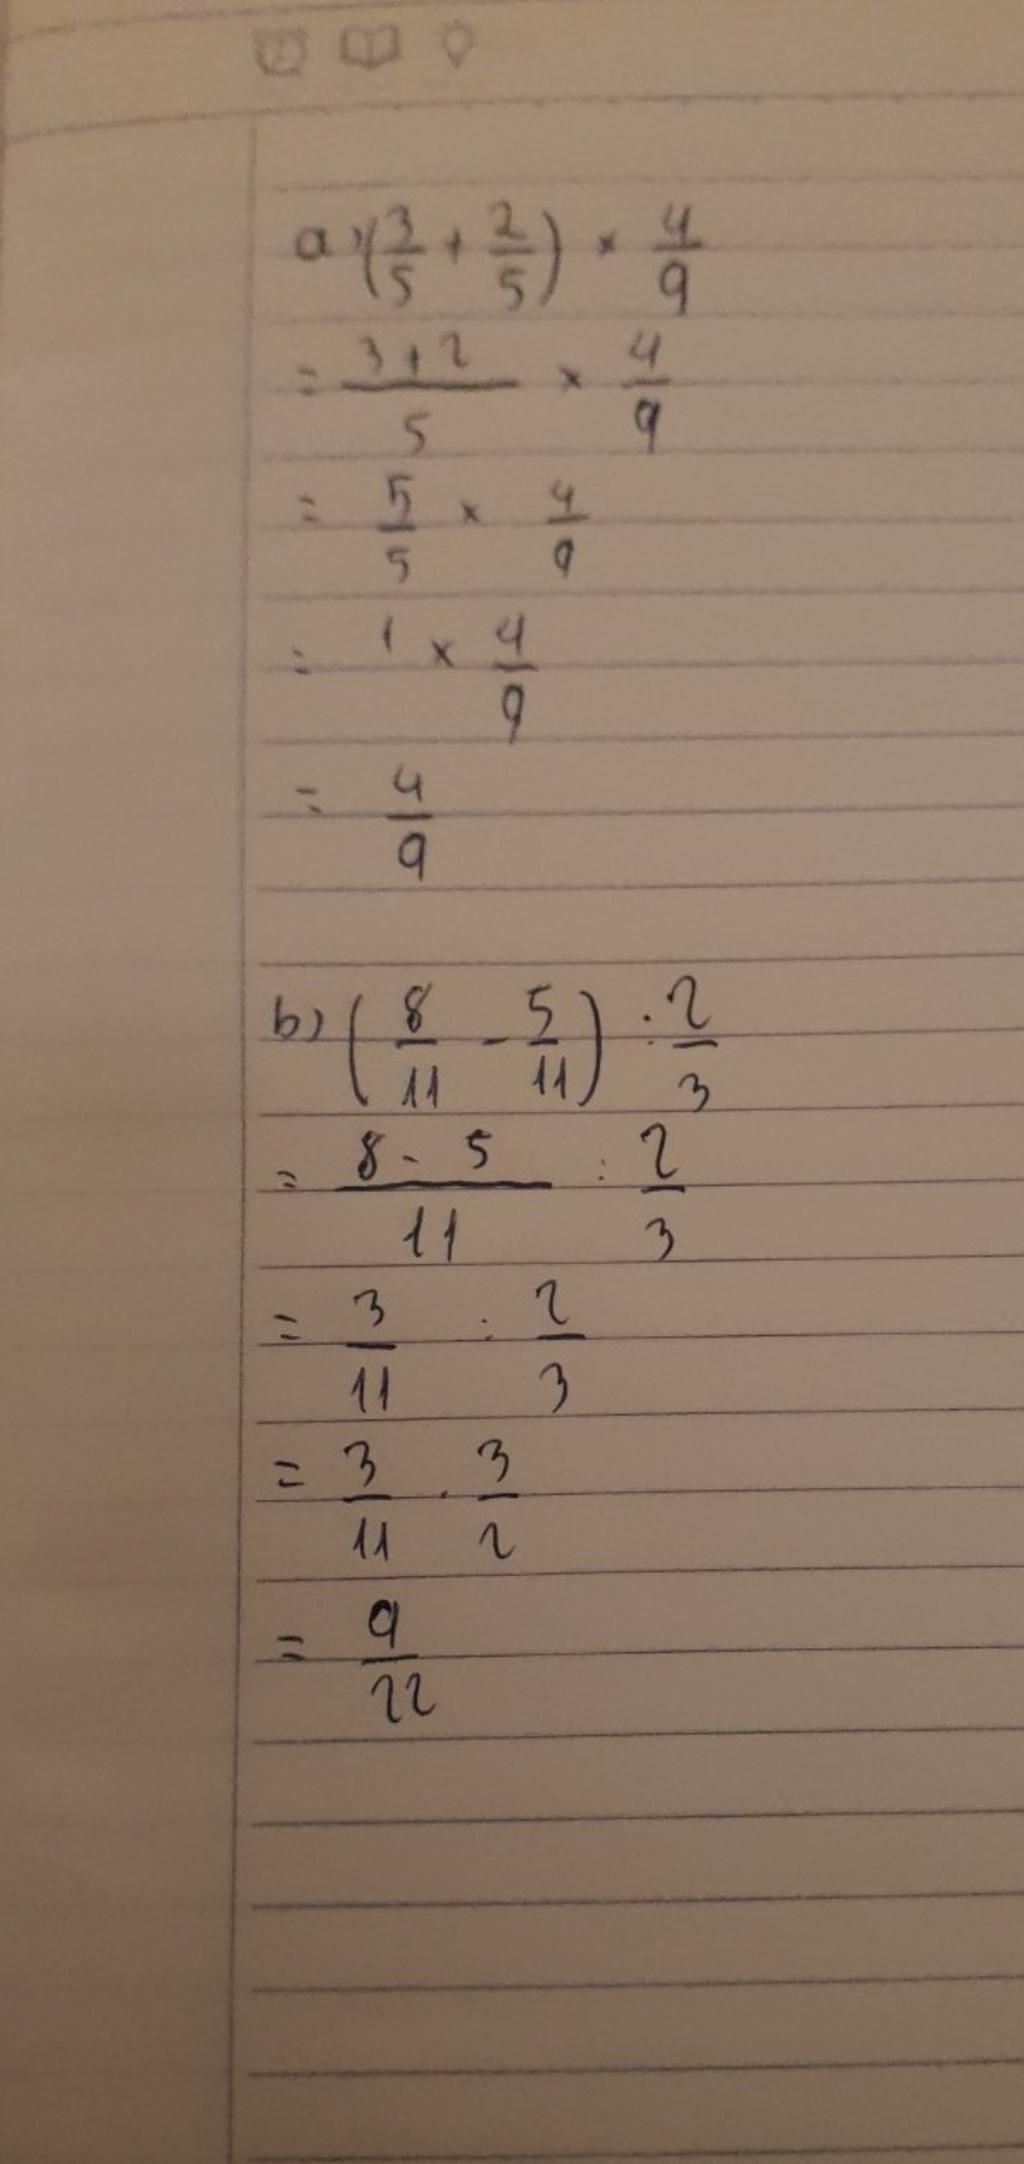 a) (3/5 + 2/5) × 4/9
= 3+2/5 × 4/9
= 5/5 × 4/9
= 1 × 4/9
= 4/9
b) (8/11 - 5/11) : 2/3
= 8-5/11 : 2/3
= 3/11 : 2/3
= 3/11 . 3/2
= 9/22